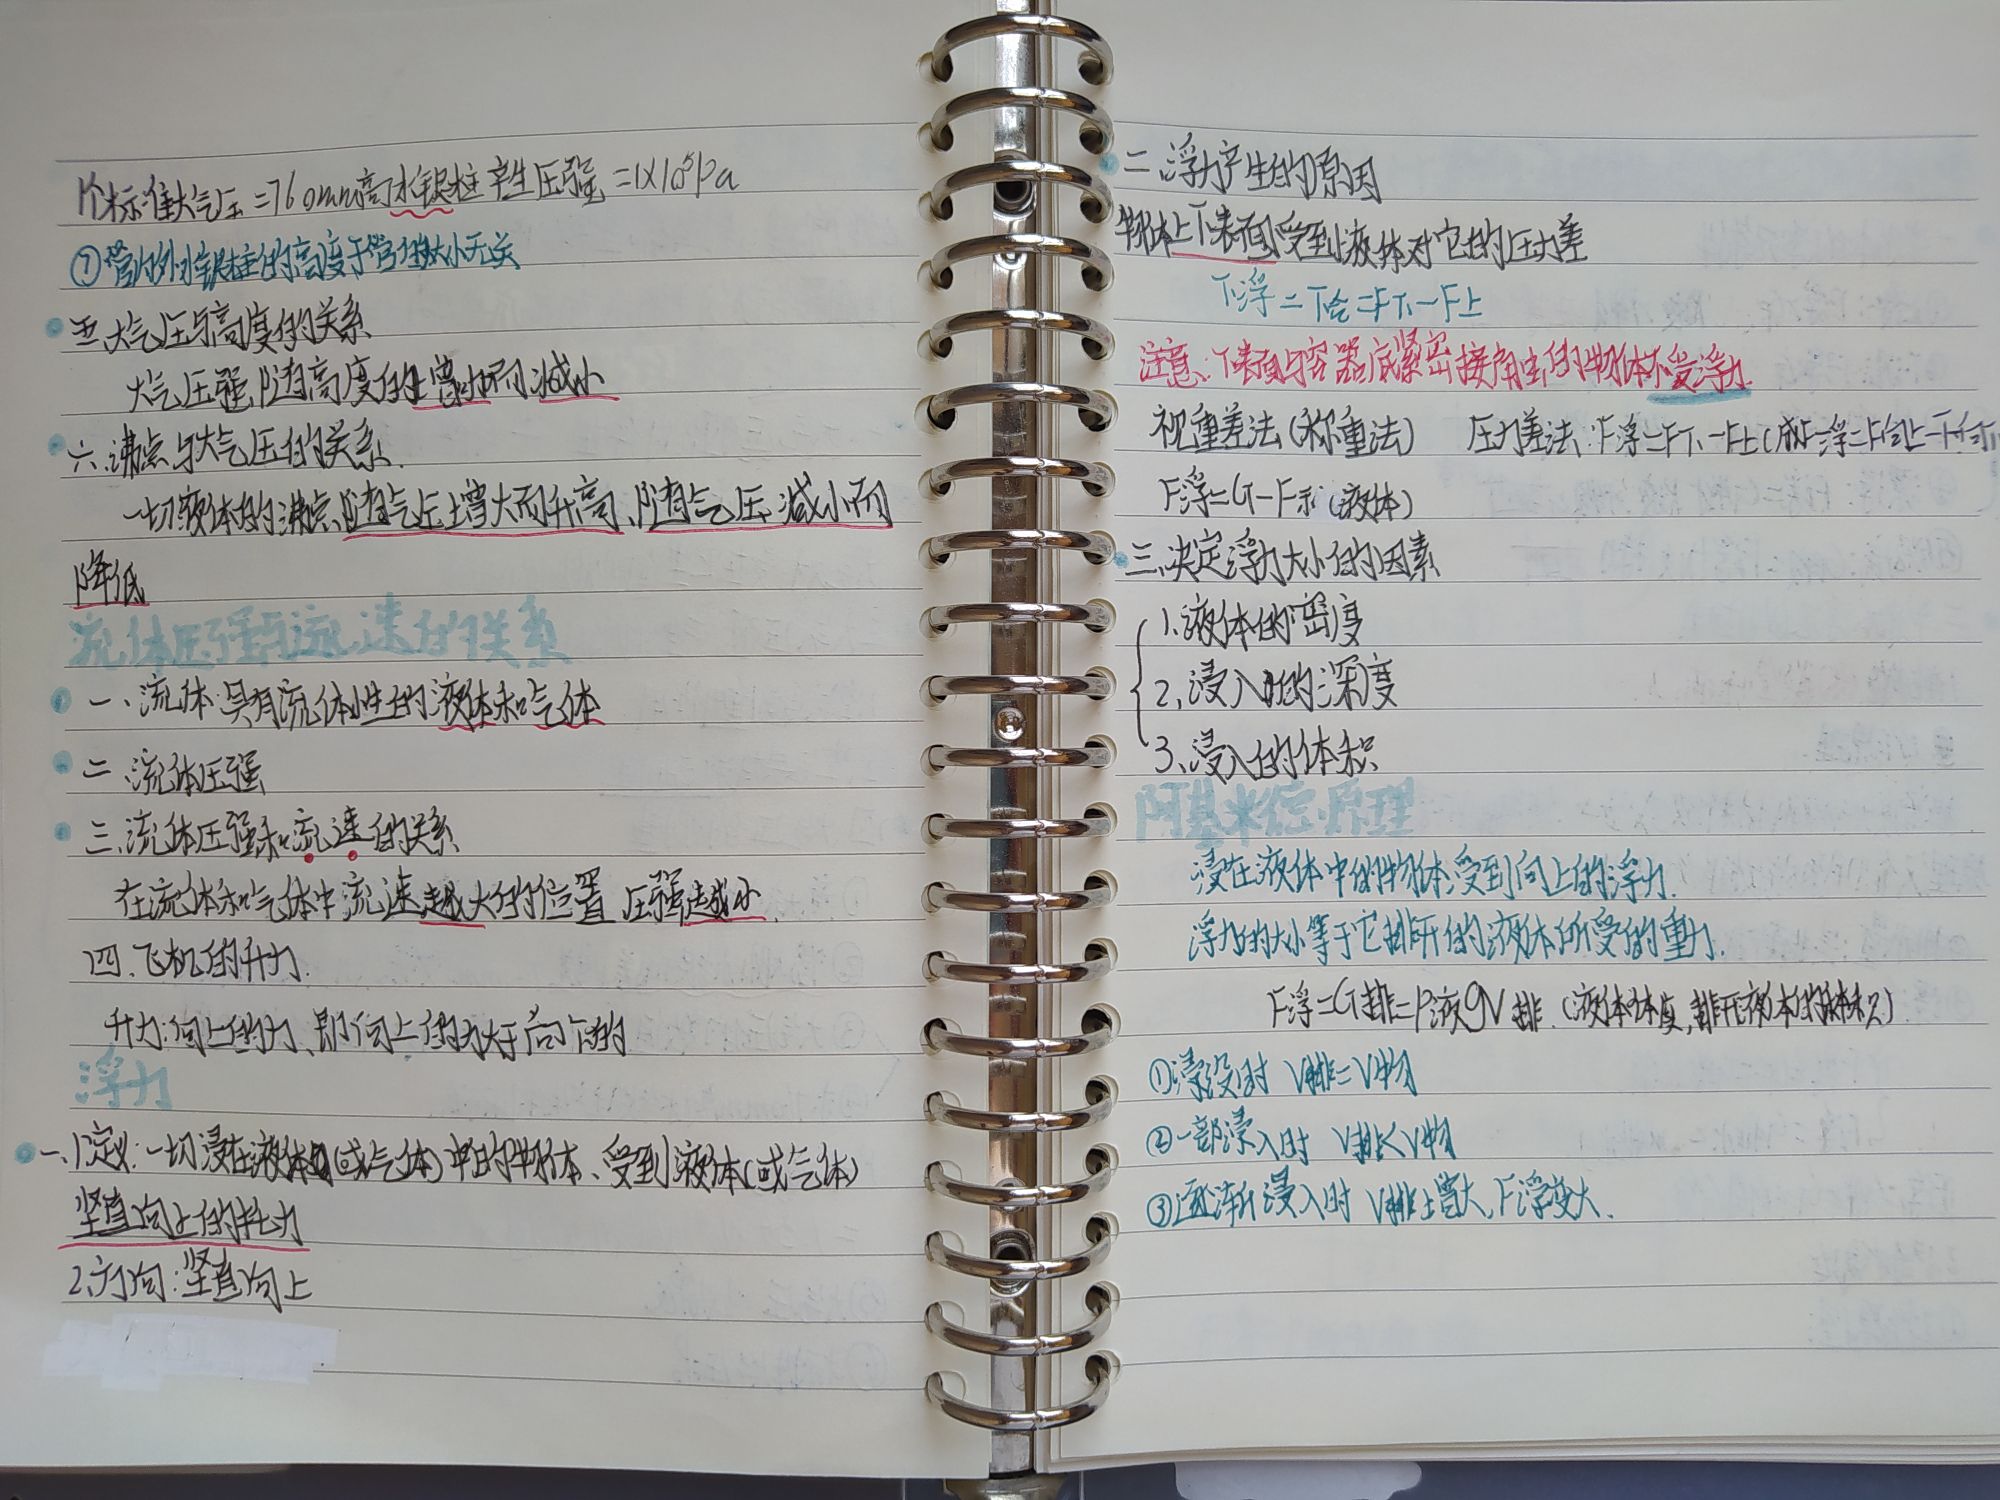 1个标准大气压=760mm高水银柱产生压强=1×10⁵Pa
⑦管内外水银柱的高度于管的大小无关
五.大气压与高度的关系
大气压强随高度的增加而减小
六.沸点与大气压的关系.
一切液体的沸点随气压增大而升高、随气压减小而
降低
流体压强与流速的关系
一、流体:具有流体性的液体和气体
二.流体压强
三.流体压强和流速的关系
在流体和气体中流速越大的位置压强越小.
四.飞机的升力.
升力:向上的力、即向上的力大于向下的
浮力
一、1.定义:一切浸在液体(或气体)中的物体、受到液体(或气体)
竖直向上的托力
2.方向:竖直向上
二.浮力产生的原因
物体上下表面受到液体对它的压力差
F浮=F合=F下-F上
注意:下表面与容器底紧密接触的物体不受浮力.
视重差法(称重法) 压力差法:F浮=F下-F上(或F浮=F向上-F向下
F浮=G-F示(液体)
三.决定浮力大小的因素
1.液体的密度
2.浸入的深度
3.浸入的体积
阿基米德原理
浸在液体中的物体受到向上的浮力.
浮力的大小等于它排开的液体所受的重力.
F浮=G排=ρ液gV排.(液体体度,排开液体的体积)
①浸没时 V排=V物
②一部浸入时 V排<V物
③逐渐浸入时 V排增大,F浮变大.